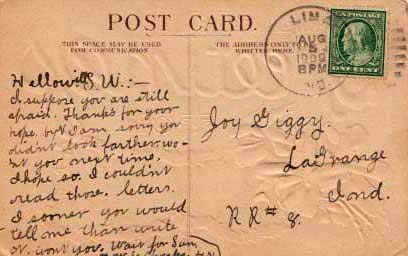 POST CARD.
THIS SPACE MAY BE USED
FOR COMMUNICATION
THE ADDRESS ONLY TO BE
WRITTEN HERE
LIMA
AUG
5
8 PM
U.S. POSTAGE
ONE CENT
Hellow S.W.:—
I suppose you are still
afraid. Thanks for your
hope, but I am sorry you
didn't look farther, wo-
nt you next time,
I hope so. I couldn't
read those. letters.
I sooner you would
tell me than write
it, wont you. Wait for Sun,
Joy Giggy.
LaGrange
Ind.
RR# 8.